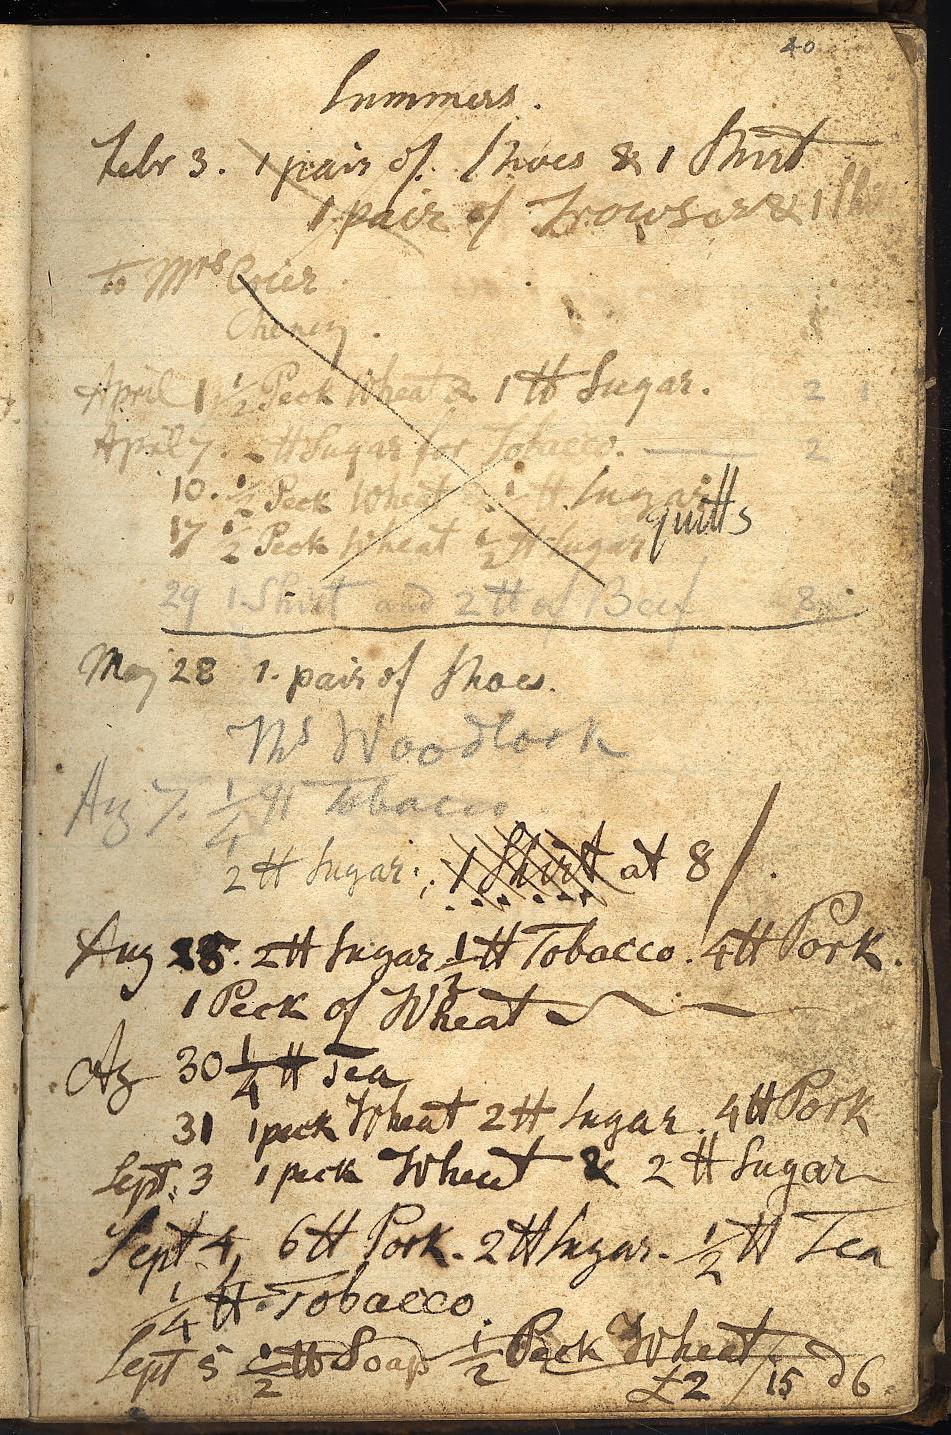 40
Summers.
Febr 3. 1 pair of Shoes & 1 Shirt
1 pair of Trowser & 1
to Mrs Crier
April 1 1/2 Peck Wheat & 1 tt Sugar. 2 1
April 7. 2 tt Sugar for Tobacco. — 2
10. 1/2 Peck Wheat & 1 tt Sugar
17 1/2 Peck Wheat 1/2 tt Sugar quitts
29 1 Shirt and 2 tt of Beef 8
May 28 1. pair of Shoes.
Ms Woodlock
Ag 7. 1/4 tt Tobacco
2 tt Sugar. 1 Shirt at 8/.
Aug 28. 2 tt Sugar 1/2 tt Tobacco. 4 tt Pork.
1 Peck of Wheat
Ag 30 1/4 tt Tea
31 1 peck Wheat 2 tt Sugar. 4 tt Pork
Sept. 3 1 peck Wheat & 2 tt Sugar
Sept 4, 6 tt Pork. 2 tt Sugar. 1/2 tt Tea
1/4 tt Tobacco.
Sept 5 1/2 tt Soap 1/2 Peck Wheat
£2/15 d6